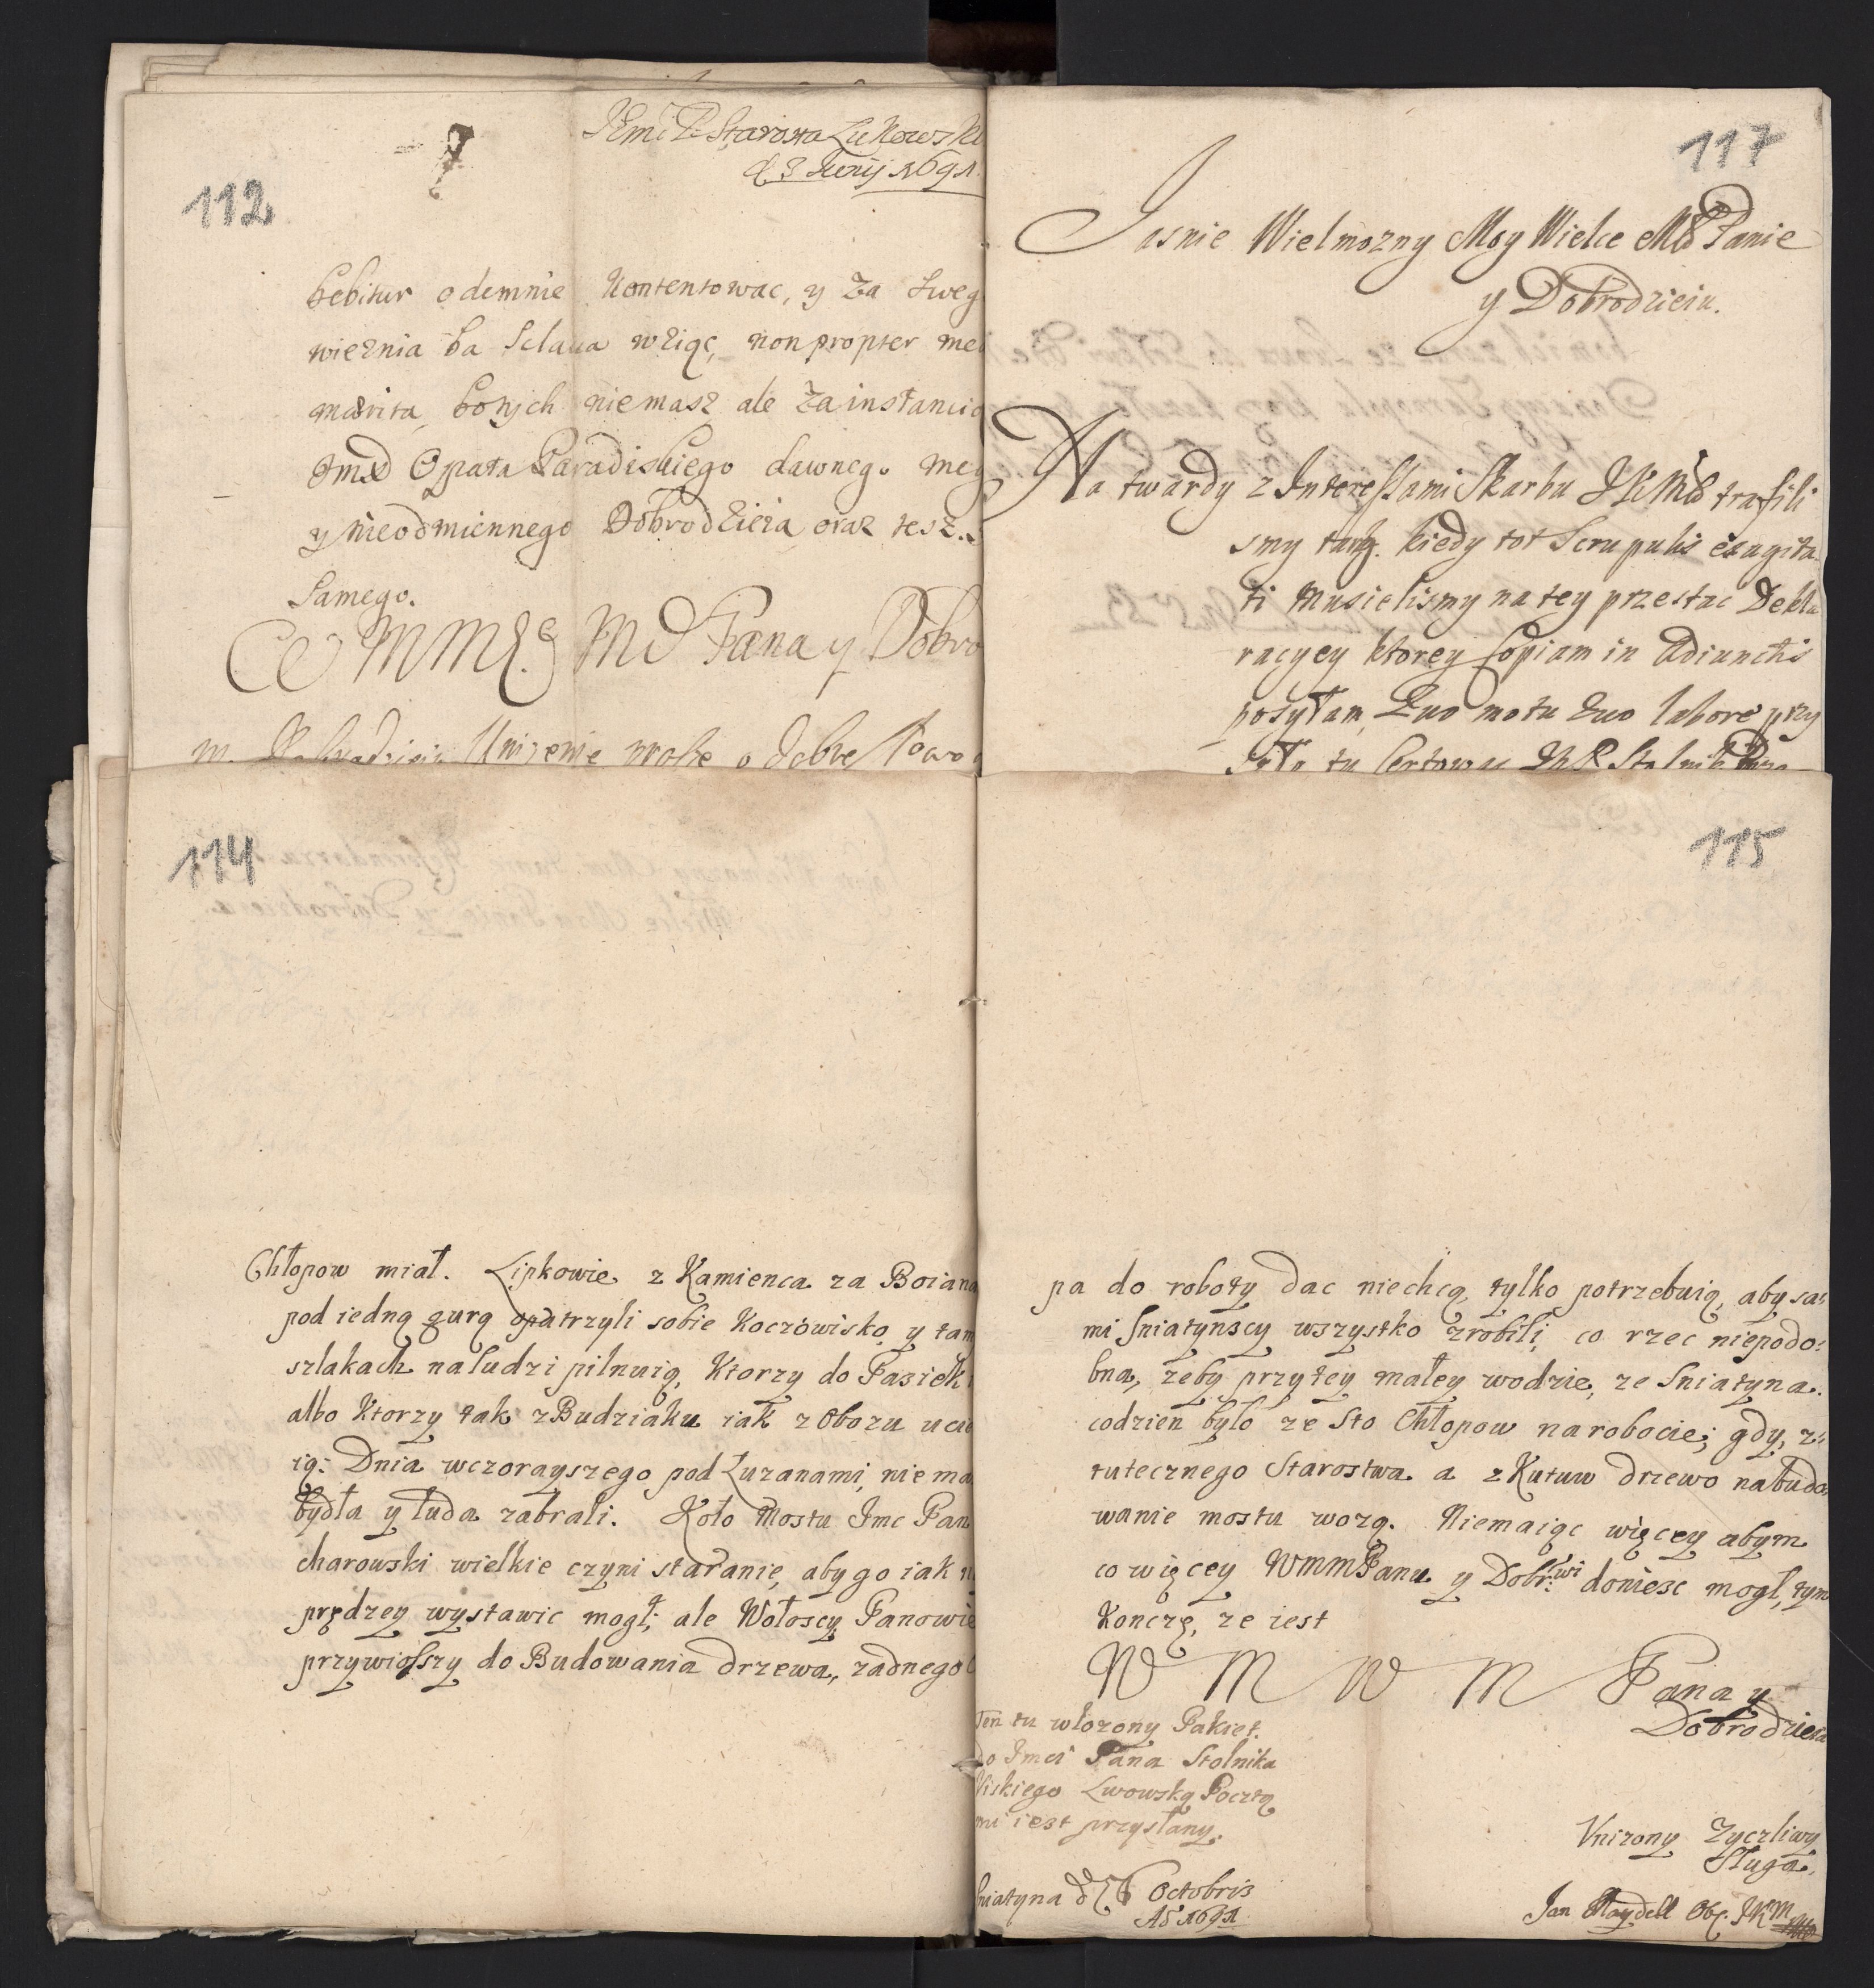 112
JEmci P. Starosta Łukowski
d. 8 Junij 1691.
bebitur odemnie Kontentowac, y Za Sweg
wieznia ba Sclaua wziąć, non propter mea
merita, botych niemasz ale Zainstancią
Opata Paradiskiego dawnego meg
y nieodmiennego Dobrodzieia oraz tesz
Samego.
Pana y Dobro
Unizenie prosze o dobre słowo
117
Jasnie Wielmozny Moy Wielce Mś Panie
y Dobrodzieiu.
Na twardy z Interessami Skarbu JKMśći trafili
smy targ. kiedy tot Scrupulis exagita
ti Musielismy na tey przestac Dekla
racyey ktorey Copiam in Adiunctis
posyłam, Suo motu Suo labore przy
114
Chłopow miał. Lipkowie z Kamienca za Boiana
pod iedną gurą opatrzyli sobie Koczowisko, y tam
szlakach na ludzi pilnuią, Ktorzy do Pasiek
albo Ktorzy tak z Budziaku iak z Obozu ucie
ią: Dnia wczorayszego pod Łuzanami, nie ma
bydła y luda zabrali. Koło Mostu Imc Pan
charowski wielkie czyni staranie, aby go iak n
prędzey wystawic mogł; ale Wołoscy Panowie
przywiosszy do Budowania drzewa, zadnego C
115
pa do roboty dac niechcą, tylko potrzebuią, aby sa:
mi Sniatynscy wszystko zrobili, co rzec niepodo:
bna, zeby przy tey małey wodzie, ze Sniatyna
codzien było ze Sto Chłopow na robocie; gdy, z:
tutecznego Starostwa a z Kutuw drzewo na budo:
wanie mostu wozą. Niemaiąc więcey abym
co więcey WMMPanu y Dobr:wi doniesc mogł, tym
Konczę, ze iest
W M W M Pana y
Dobrodzieia
Ten tu włozony Pakiet
do Imci Pana Stolnika
Wiskiego Lwowską Pocztą
mi iest przysłany.
Sniatyna d. 6 Octobris
Ao 1691.
Vnizony Zyczliwy
Sługa.
Jan Maydell Ob. JKM